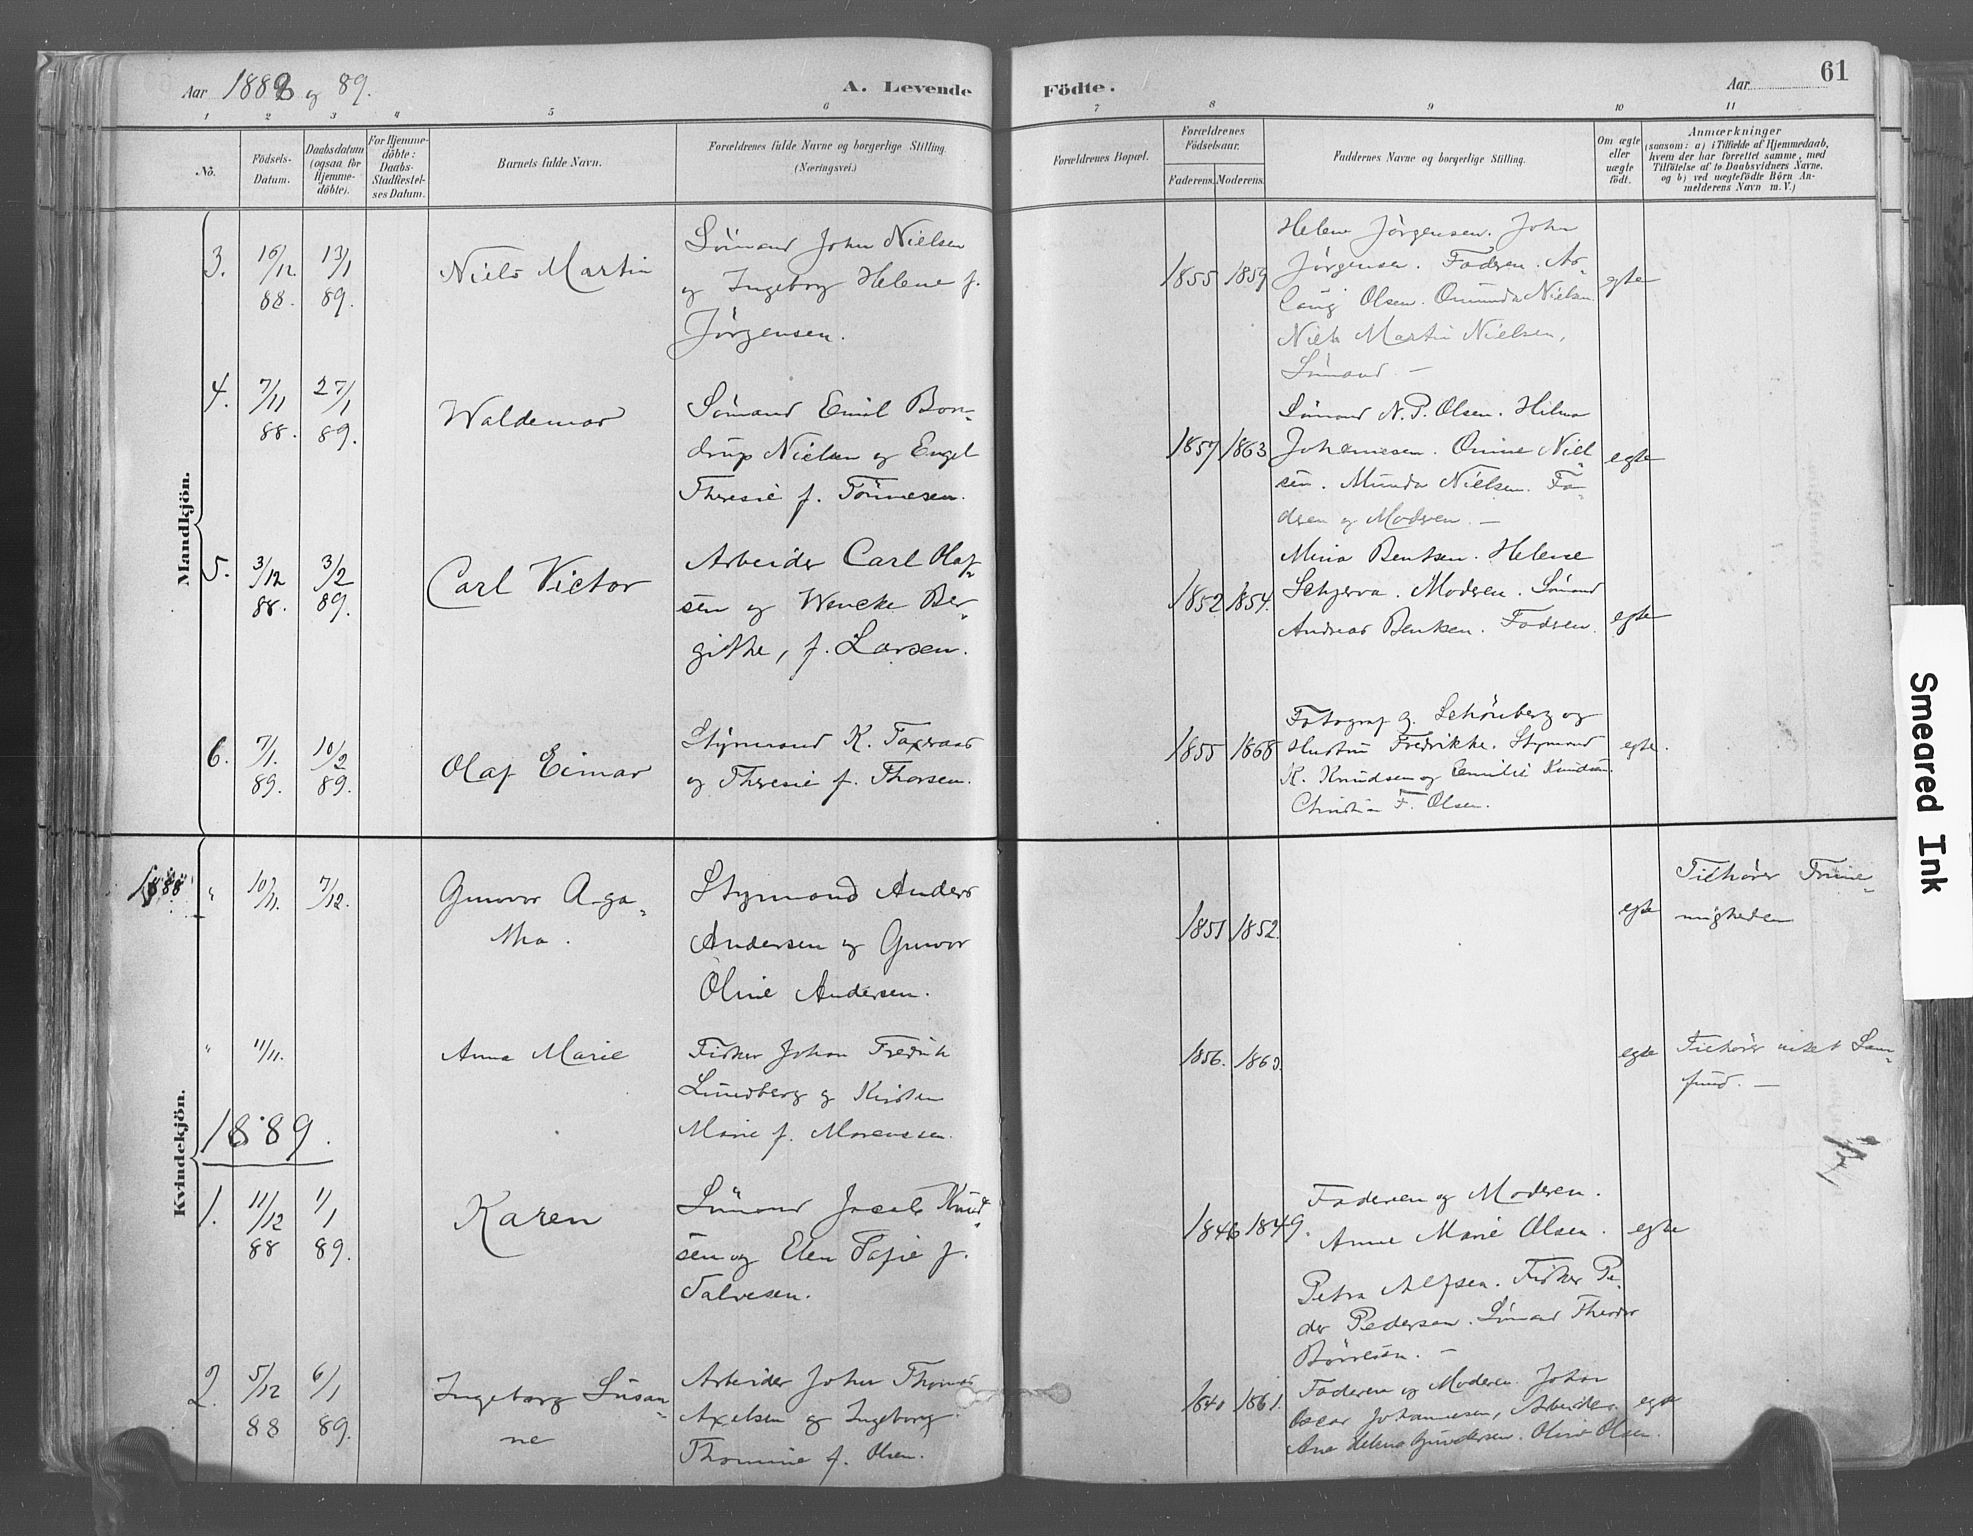 Aar 1888 og 89.
A. Levende
Födte.
Aar
61
1 2 3 4 5 6 7 8 9 10 11
No.
Födsels-
Datum.
Daabsdatum
(ogsaa for
Hjemme-
döbte).
For Hjemme-
döbte:
Daabs-
Stadfæstel-
ses Datum.
Barnets fulde Navn.
Forældrenes fulde Navne og borgerlige Stilling.
(Næringsvei.)
Forældrenes Bopæl.
Forældrenes
Födselsaar.
Faderens. Moderens.
Faddernes Navne og borgerlige Stilling.
Om ægte
eller
uægte
födt.
Anmærkninger
(saasom: a) i Tilfælde af Hjemmedaab,
hvem der har forrettet samme, med
Tilföielse af to Daabsvidners Navne,
og b) ved uægtefödte Börn An-
melderens Navn m. V.)
Mandkjön.
3. 16/12 88. 13/1 89. Niels Martin
Sömand John Nielsen
og Ingeborg Helene f.
Jörgensen.
1855 1859
Helene Jörgensen. John
Jörgensen. Faderen. As-
laug Olsen. Omunda Nielsen
Niels Martin Nielsen,
Sömand. —
egte
4. 7/11 88. 27/1 89. Waldemar
Sömand Emil Bon-
drup Nielsen og Engel
Theresie f. Tönnesen.
1857 1863
Sömand N. P. Olsen. Hilma
Johannesen. Omine Niel-
sen. Munda Nielsen. Fa-
deren og Moderen. —
egte
5. 3/12 88. 3/2 89. Carl Victor
Arbeider Carl Olaf-
sen og Wencke Ber-
githe, f. Larsen.
1852 1854.
Mina Bentsen. Helene
Schjerva. Moderen. Sömand
Andreas Bentsen. Faderen.
egte
6. 7/1. 89. 10/2 89. Olaf Eimar
Styrmand K. Taxraas
og Theresie f. Thorsen.
1855 1868
Fotograf G. Schönberg og
Hustru Fredrikke. Styrmand
K. Knudsen og Emilie Knudsen.
Christian F. Olsen.
egte.
1888
Kvindekjön.
" 10/11. 7/12. Gunvor Aga-
tha.
Styrmand Anders
Andersen og Gunvor
Oline Andersen.
1851 1852.
egte
Tilhörer Frime-
nigheden
" 11/11. Anna Marie
Fisker Johan Fredrik
Lundberg og Kirsten
Marie f. Morensen.
1856. 1863.
egte
Tilhörer intet Sam-
fund. —
1889.
1. 11/12 88 1/1 89. Karen
Sömand Jacob Knud-
sen og Elen Tasie f.
Salvesen.
1846 1849.
Faderen og Moderen.
Anne Marie Olsen.
Petra Alfsen. Fisker Pe-
der Pedersen. Sömand Theodor
Börresen. —
egte
2. 5/12 88 6/1 89. Ingeborg Susan-
ne
Arbeider John Thomas
Axelsen og Ingeborg
Thomine f. Olsen.
1840 1861.
Faderen og Moderen. Johan
Oscar Johannesen, Arbeider.
Ana Helena Gundersen. Oline Olsen.
egte
Smeared Ink